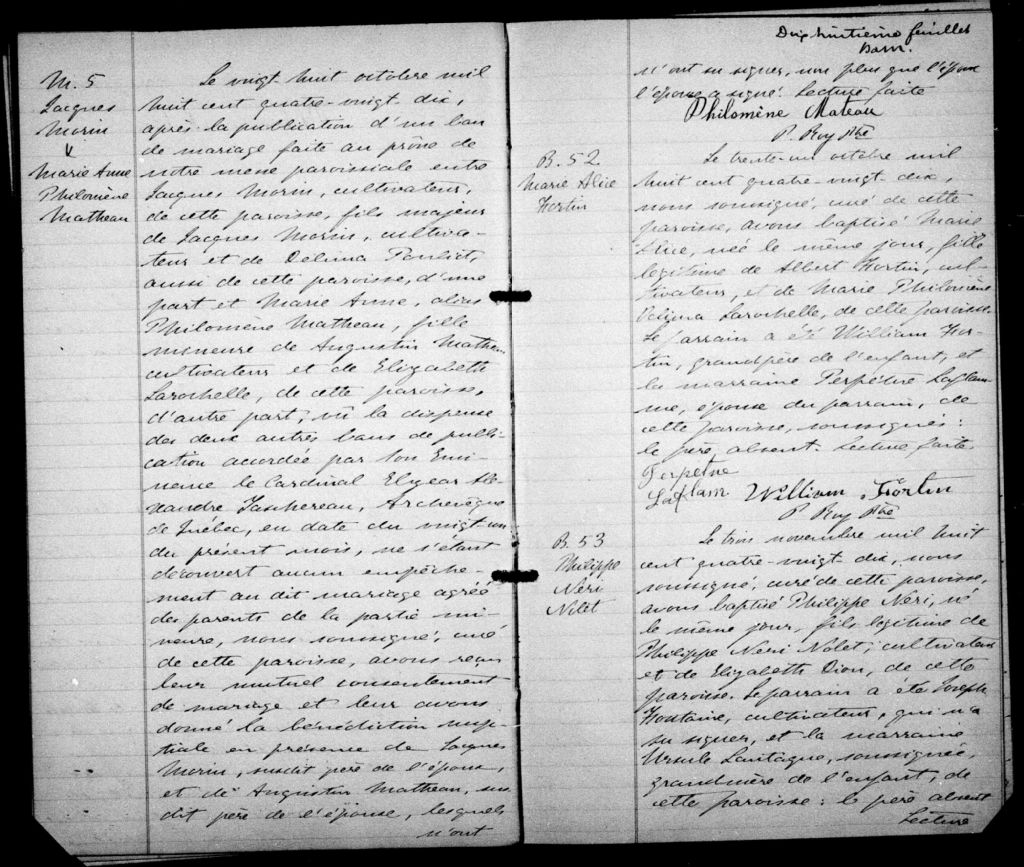 M. 5
Jacques
Morin
&
Marie Anne
Philomène
Matheau
Le vingt-huit octobre mil
huit cent quatre-vingt-dix,
après la publication d'un ban
de mariage faite au prône de
notre messe paroissiale entre
Jacques Morin, cultivateur,
de cette paroisse, fils majeur
de Jacques Morin, cultiva-
teur et de Delima Pouliot,
aussi de cette paroisse, d'une
part et Marie Anne, alias
Philomène Matheau, fille
mineure de Augustin Matheau
cultivateur et de Elizabeth
Larochelle, de cette paroisse,
d'autre part; vû la dispense
des deux autres bans de publi-
cation accordée par Son Emi-
nence le Cardinal Elzear Ale-
xandre Taschereau, Archevêque
de Québec, en date du vingt-un
du présent mois, ne s'étant
découvert aucun empêche-
ment au dit mariage agréé
des parents de la partie mi-
neure, nous soussigné, curé
de cette paroisse, avons reçu
leur mutuel consentement
de mariage et leur avons
donné la bénédiction nup-
tiale en présence de Jacques
Morin, susdit père de l'époux,
et de Augustin Matheau, sus-
dit père de l'épouse, lesquels
n'ont
Dix huitième feuillet
n'ont su signer, non plus que l'époux
l'épouse a signé. Lecture faite
Philomène Mateau
P. Roy Ptre
B. 52
Marie Alice
Fortin
Le trente-un octobre mil
huit cent quatre-vingt-dix,
nous soussigné, curé de cette
paroisse, avons baptisé Marie
Alice, née le même jour, fille
legitime de Albert Fortin, cul-
tivateur, et de Marie Philomène
Larochelle, de cette paroisse.
Le parrain a été William For-
tin, grandpère de l'enfant, et
la marraine Perpétue Laflam-
me, épouse du parrain, de
cette paroisse, soussignés:
le père absent. Lecture faite.
Perpétue
Laflam William Fortin
P. Roy Ptre
B. 53
Philippe
Néri
Nolet
Le trois novembre mil huit
cent quatre-vingt-dix, nous
soussigné, curé de cette paroisse,
avons baptisé Philippe Néri, né
le même jour, fils legitime de
Philippe Néri Nolet, cultivateur
et de Elizabeth Dion, de cette
paroisse. Le parrain a été Joseph
Fontaine, cultivateur, qui n'a
su signer, et la marraine
Ursule Lantagne, soussignée,
grandmère de l'enfant, de
cette paroisse: le père absent
Lecture